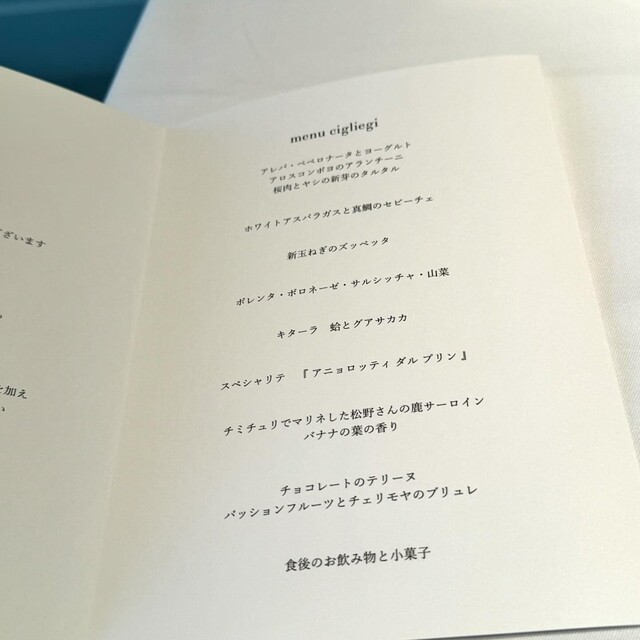 ございます
を加え
い
menu cigliegi
アレパ・ペペロナータとヨーグルト
アロスコンポヨのアランチーニ
桜肉とヤシの新芽のタルタル
ホワイトアスパラガスと真鯛のセビーチェ
新玉ねぎのズッペッタ
ポレンタ・ボロネーゼ・サルシッチャ・山菜
キターラ　蛤とグアサカカ
スペシャリテ　『 アニョロッティ ダル プリン 』
チミチュリでマリネした松野さんの鹿サーロイン
バナナの葉の香り
チョコレートのテリーヌ
パッションフルーツとチェリモヤのブリュレ
食後のお飲み物と小菓子